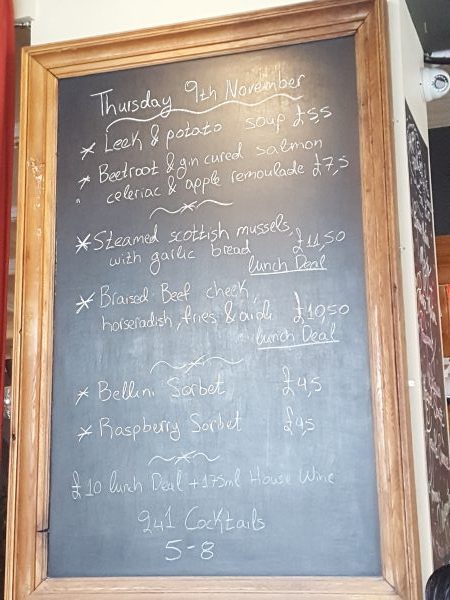 Thursday 9th November
* Leek & potato soup £5,5
* Beetroot & gin cured salmon
celeriac & apple remoulade £7,5
* Steamed scottish mussels,
with garlic bread £11,50
lunch Deal
* Braised Beef cheek,
horseradish, fries & aioli £10,50
lunch Deal
* Bellini Sorbet £4,5
* Raspberry Sorbet £4,5
£10 lunch Deal + 175ml House Wine
241 Cocktails
5-8